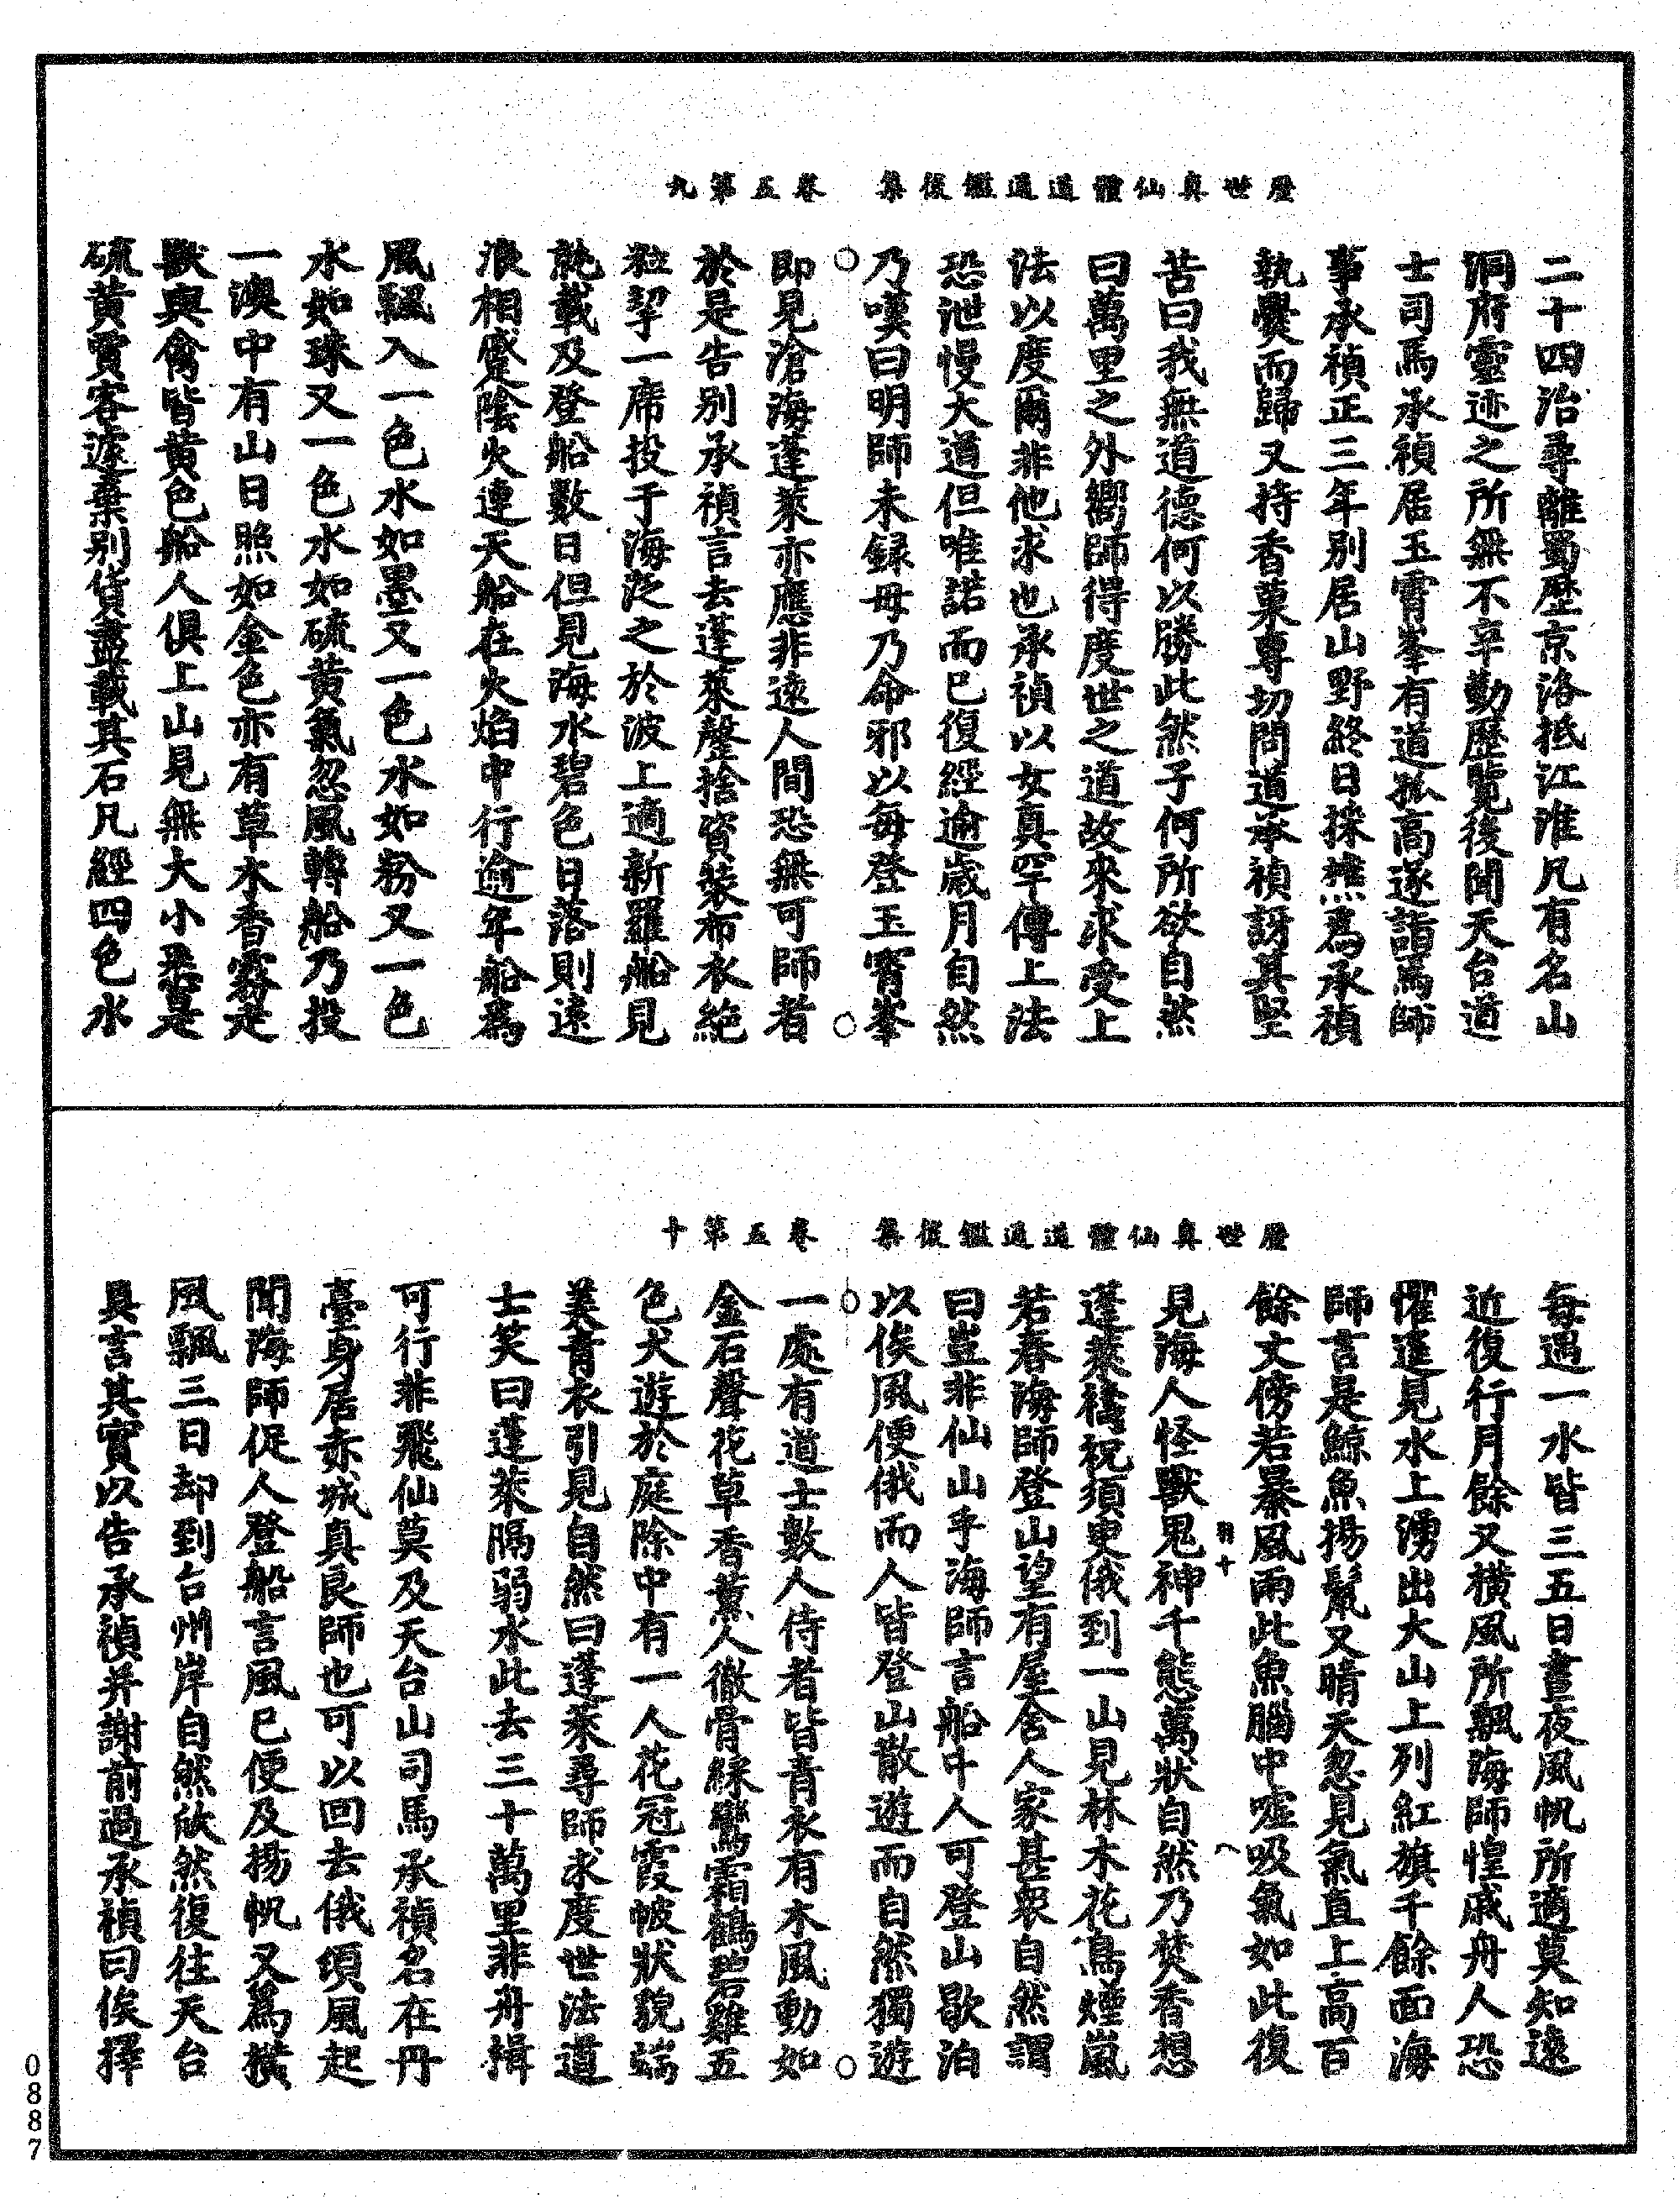 歷世真仙體道通鑑後集　卷五第九
二十四治尋離蜀歷京洛抵江淮凡有名山
洞府靈迹之所無不辛勤歷覽後聞天台道
士司馬承禎居玉霄峯有道孤高遂詣焉師
事承禎正三年別居山野終日採樵為承禎
執爨而歸又持香菓專切問道承禎訝其堅
苦曰我無道德何以勝此然子何所欲自然
曰萬里之外嚮師得度世之道故來求受上
法以度爾非他求也承禎以女真罕傳上法
恐泄慢大道但唯諾而已復經逾歲月自然
乃嘆曰明師未録毋乃命邪以每登玉霄峯
即見滄海蓬萊亦應非遠人間恐無可師者
於是告別承禎言去蓬萊罄捨資裝布衣絕
粒挈一席投于海泛之於波上適新羅船見
就載及登船數日但見海水碧色日落則遠
浪相蹙陰火連天船在火焰中行逾年船為
風飄入一色水如墨又一色水如粉又一色
水如珠又一色水如硫黃氣忽風轉船乃投
一澳中有山日照如金色亦有草木香霧是
獸與禽皆黃色船人俱上山見無大小悉是
硫黃賈客遽棄別貨盡載其石凡經四色水
歷世真仙體道通鑑後集　卷五第十
每過一水皆三五日晝夜風帆所適莫知遠
近復行月餘又橫風所飄海師惶戚舟人恐
懼遙見水上湧出大山上列紅旗千餘面海
師言是鯨魚揚鬣又晴天忽見氣直上高百
餘丈傍若暴風雨此魚腦中噓吸氣如此復
羽十　八
見海人怪獸鬼神千態萬狀自然乃焚香想
蓬萊禱祝須臾俄到一山見林木花鳥煙嵐
若春海師登山望有屋舍人家甚衆自然謂
曰豈非仙山乎海師言船中人可登山歇泊
以俟風便俄而人皆登山散遊而自然獨遊
一處有道士數人侍者皆青衣有木風動如
金石聲花草香薰人徹骨綵鸞霜鶴碧雞五
色犬遊於庭除中有一人花冠霞帔狀貌端
美青衣引見自然曰蓬萊尋師求度世法道
士笑曰蓬萊隔弱水此去三十萬里非舟楫
可行非飛仙莫及天台山司馬承禎名在丹
臺身居赤城真良師也可以回去俄頃風起
聞海師促人登船言風已便及揚帆又為橫
風飄三日却到台州岸自然欣然復往天台
具言其實以告承禎并謝前過承禎曰俟擇
0887